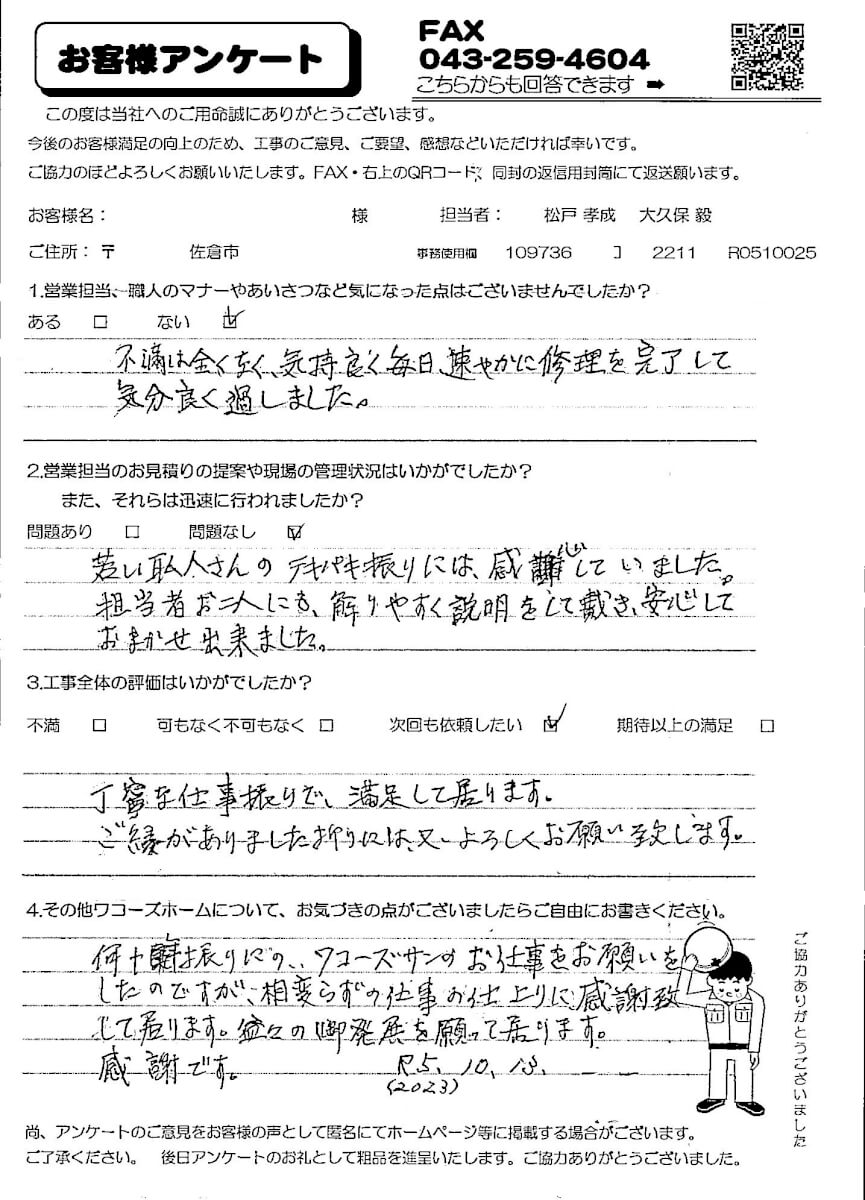 お客様アンケート
FAX
043-259-4604
こちらからも回答できます ➡
この度は当社へのご用命誠にありがとうございます。
今後のお客様満足の向上のため、工事のご意見、ご要望、感想などいただければ幸いです。
ご協力のほどよろしくお願いいたします。FAX・右上のQRコード、同封の返信用封筒にて返送願います。
お客様名： 様 担当者： 松戸 孝成 大久保 毅
ご住所：〒 佐倉市 事務使用欄 109736 コ 2211 R0510025
1.営業担当、職人のマナーやあいさつなど気になった点はございませんでしたか？
ある □ ない ☑
不満は全くなく、気持良く毎日、速やかに修理を完了して
気分良く過しました。
2.営業担当のお見積りの提案や現場の管理状況はいかがでしたか？
また、それらは迅速に行われましたか？
問題あり □ 問題なし ☑
若い職人さんのテキパキ振りには、感心していました。
担当者お二人にも、解りやすく説明をして戴き、安心して
おまかせ出来ました。
3.工事全体の評価はいかがでしたか？
不満 □ 可もなく不可もなく □ 次回も依頼したい ☑ 期待以上の満足 □
丁寧な仕事振りで、満足して居ります。
ご縁がありました折りには、又、よろしくお願い致します。
4.その他ワコーズホームについて、お気づきの点がございましたらご自由にお書きください。
何十振りにの、ワコーズサンのお仕事をお願いを
したのですが、相変らずの仕事のお仕上りに感謝致
して居ります。益々の御発展を願って居ります。
感謝です。 R5.10.13.
(2023)
ご協力ありがとうございました
尚、アンケートのご意見をお客様の声として匿名にてホームページ等に掲載する場合がございます。
ご了承ください。 後日アンケートのお礼として粗品を進呈いたします。ご協力ありがとうございました。